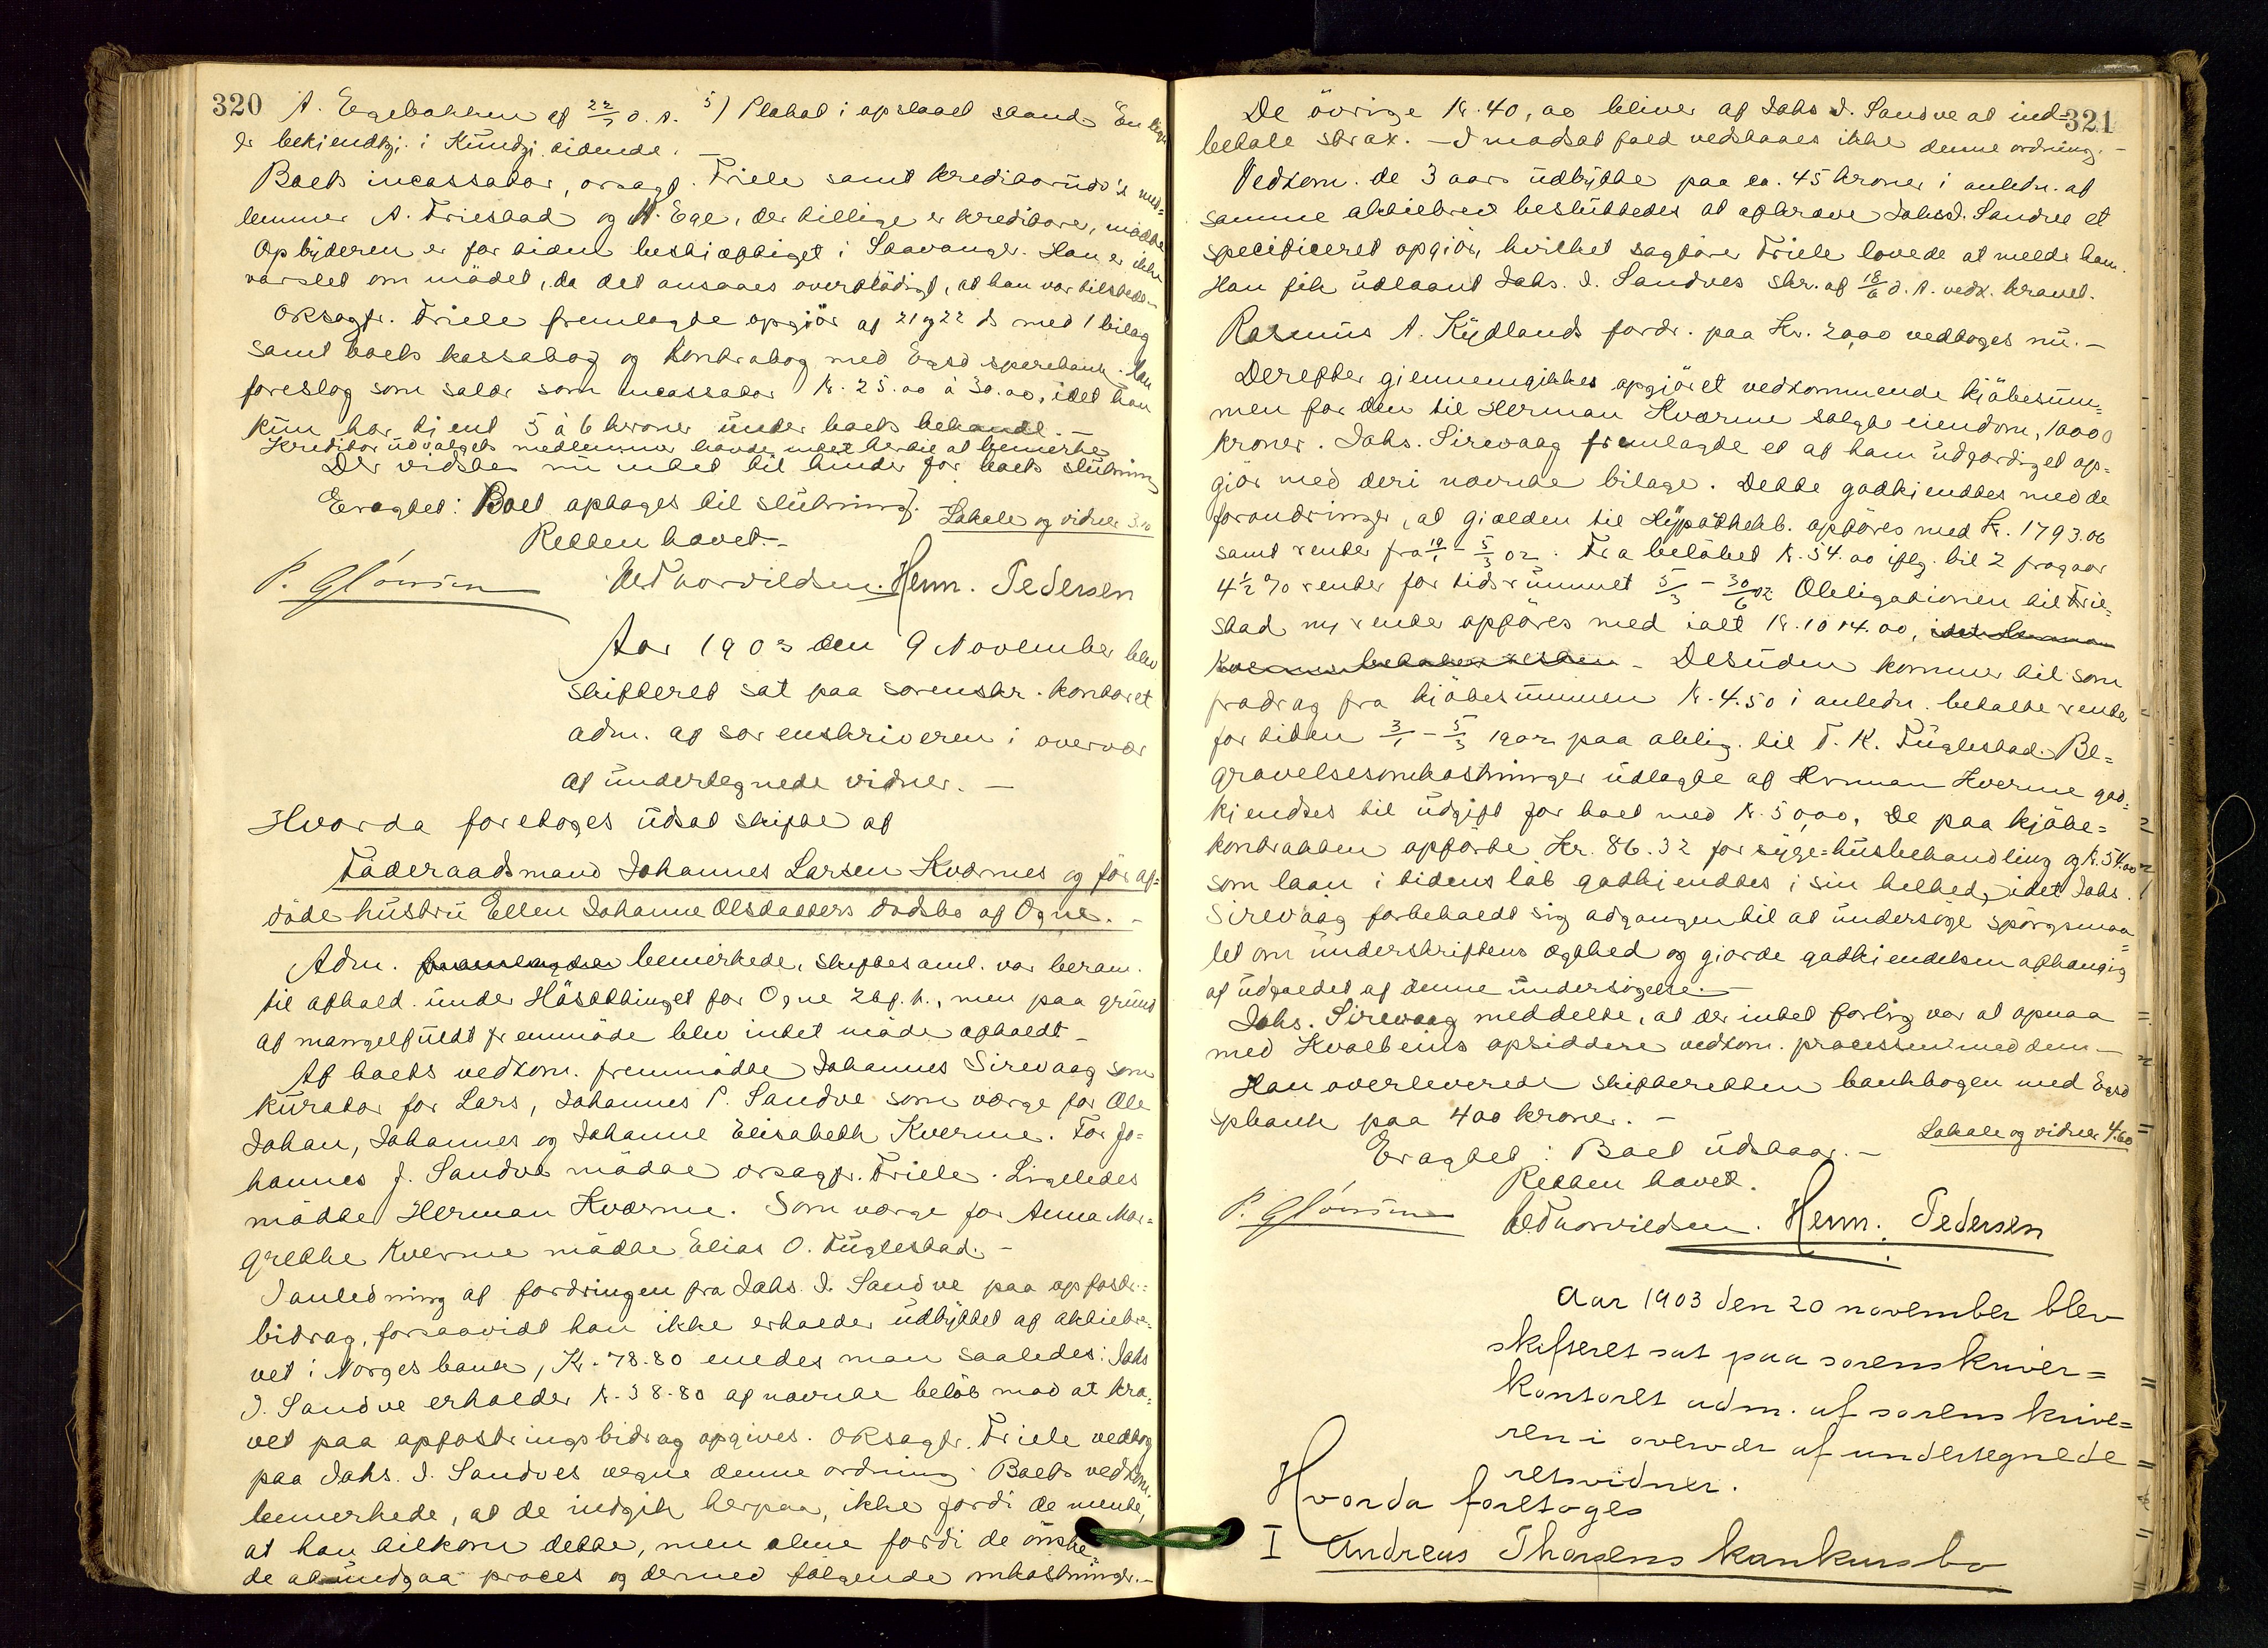 320
A. Eegebakken af 22/7 d. A. 5) Plakat i opslaaet stand. En lign
de bekjendtgj. i Kundgj. tidende. —
Boets incassator, orsagf. Friele samt kreditorudv's med=
lemmer A. Friestad og M. Ege, der tillige er kreditore, mødte
Opbyderen er for tiden beskjæftiget i Stavanger. Han er ikke
varslet om mødet, da det ansaaes overflødigt, at han var tilstede.—
ORsagfr. Friele fremlagde opgjør af 21 og 22 ds med 1 bilag
samt boets kassabog og kontrabog med Egsd sparebank. Han
foreslog som salær som incassator Kr. 25.00 à 30.00, idet han
kun har tjent 5 à 6 kroner under boets behandl. —
Kreditorudvalgets medlemmer havde intet hertil at bemerke
Der vidstes nu intet til hinder for boets slutning
Eragtet: Boet optages til slutning.
Lokale og vidner 3.10
Retten hævet.—
P. Glørsen  Herm. Pedersen
Aar 1903 den 9 November blev
skifteret sat paa sorenskr. kontoret
adm. af sorenskriveren i overvær
af undertegnede vidner. —
Hvorda foretoges udsat skifte af
Føderaadsmand Johannes Larsen Kværnes og før af=
døde hustru Ellen Johanne Olsdatters dødsbo af Ogne. —
Adm. fremlagde bemerkede, skiftesaml. var beram.
til afhold. under Høstthinget for Ogne 2 bf. h., men paa grund
af mangelfuldt fremmøde blev intet møde afholdt —
Af boets vedkom. fremmødte Johannes Sirevaag som
kurator for Lars, Johannes P. Sandve som værge for Ole
Johan, Johannes og Johanne Elisabeth Kverme. For Jo=
hannes J. Sandve mødte orsagfr. Friele. Ligeledes
mødte Herman Kværme. Som værge for Anna Mar=
grethe Kverme mødte Elias O. Fuglestad. —
I anledning af fordringen fra Johs. J. Sandve paa opfostr.=
bidrag, forsaavidt han ikke erholder udbyttet af aktiebre=
vet i Norges bank, Kr. 78.80 enedes man saaledes: Johs
J. Sandve erholder Kr. 38.80 af nævnte beløb mod at kra=
vet paa opfostringsbidrag opgives. ORsagfr. Friele vedtog
paa Johs. J. Sandves vegne denne ordning. Boets vedkom.
bemerkede, at de indgik herpaa, ikke fordi de mente,
at han tilkom dette, men alene fordi de ønske
de at undgaa proces og dermed følgende omkostninger.—
321
De øvrige Kr. 40,00 bliver af Johs J. Sandve at ind=
betale strax. — I modsat fald vedstaaes ikke denne ordning. —
Vedkom. de 3 aars udbytte paa ca. 45 kroner i anledn. af
samme aktiebrev besluttedes at afkræve Johs J. Sandve et
specificeret opgjør, hvilket sagfører Friele lovede at melde ham.
Han fik udlaant Johs. J. Sandves skr. af 18/6 d. A. vedk. kravet.
Rasmus A. Kydlands fordr. paa Kr. 20,00 vedtoges nu. —
Derefter gjennemgikkes opgjøret vedkommende kjøbesum=
men for den til Herman Kværme solgte eiendom, 10000
kroner. Johs. Sirevaag fremlagde et af ham udfærdiget op=
gjør med deri nævnte bilage. Dette godkjendtes med de
forandringer, at gjælden til Hypothekb. opføres med Kr. 1793.06
samt renter fra 19/1 – 5/3 02. Fra beløbet Kr. 54.00 iflg. bil 2 fragaar
4 1/2 % renter for tidsrummet 5/3 – 30/6 02 Obligationen til Frie=
stad m/ rente opføres med ialt Kr. 1014.00, idet Herman
Kværme betaler resten – Desuden kommer til som
fradrag fra kjøbesummen Kr. 4.50 i anledn. betalte renter
for tiden 3/1 – 5/3 1902 paa oblig. til T. K. Fuglestad. Be=
gravelsesomkostninger udlagte af Herman Kverme god=
kjendtes til udgift for boet med Kr. 50,00. De paa kjøbe=
kontrakten opførte Kr. 86.32 for syge=husbehandling og Kr. 54.00
som laan i tidens løb godkjendtes i sin helhed, idet Johs.
Sirevaag forbeholdt sig adgangen til at undersøge spørgsmaa=
let om underskriftens ægthed og gjorde godkjendelsen afhængig
af udfaldet af denne undersøgelse. —
Johs. Sirevaag meddelte, at der intet forlig var at opnaa
med Kvalbeins opsiddere vedkom. processen med dem —
Han overleverede skifteretten bankbogen med Egsd
spbank paa 400 kroner. —
Lokale og vidner 4.60
Eragtet: Boet udstaar. —
Retten hævet.
P. Glørsen  Herm. Pedersen
Aar 1903 den 20 november blev
skifteret sat paa sorenskriver=
kontoret adm. af sorenskrive=
ren i overvær af undertegnede
retsvidner.
Hvorda foretoges
I Andreas Thorsens konkursbo